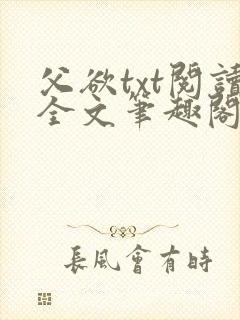 父欲txt閱讀
全文筆趣閣
長風會有時